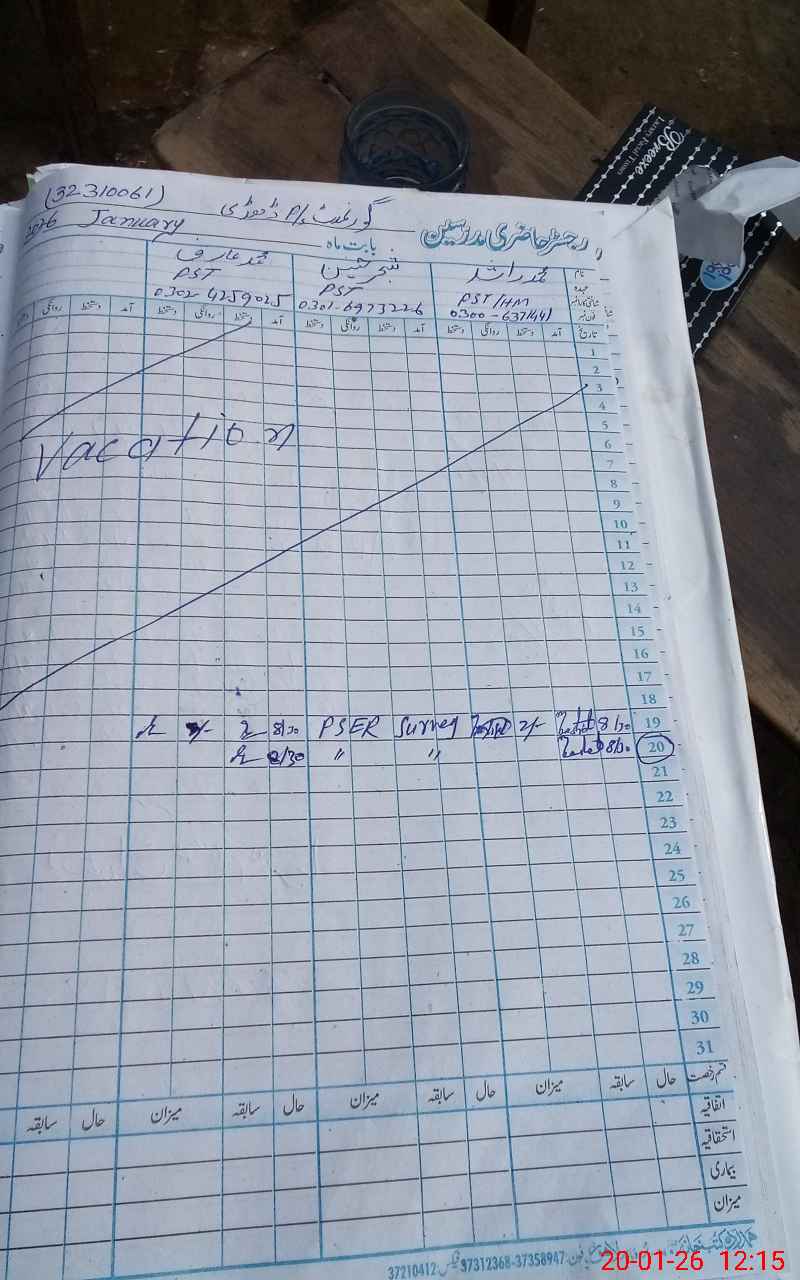 (32310061)
2026 January
گورنمنٹ P/S
رجسٹر حاضری مدرسین
بابت ماہ
نام محمد راشد محمد عارف
عہدہ PST/HM PST PST
فون نمبر 0301-6973226 0302-4259025
تاریخ آمد دستخط روانگی دستخط آمد دستخط روانگی دستخط آمد دستخط روانگی دستخط آمد دستخط روانگی
1
2
3
4
5
Vacation
6
7
8
9
10
11
12
13
14
15
16
17
18
19 8/30 2/- Survey PSER 8/30
20 8/30 " " 8/30
21
22
23
24
25
26
27
28
29
30
31
قسم رخصت حال سابقہ میزان حال سابقہ میزان حال سابقہ میزان حال سابقہ
اتفاقیہ
استحقاقیہ
بیماری
میزان
فون: 37358947-37312368 فیکس: 37210412
Breeze
Luxury Facial Tissues
20-01-26 12:15